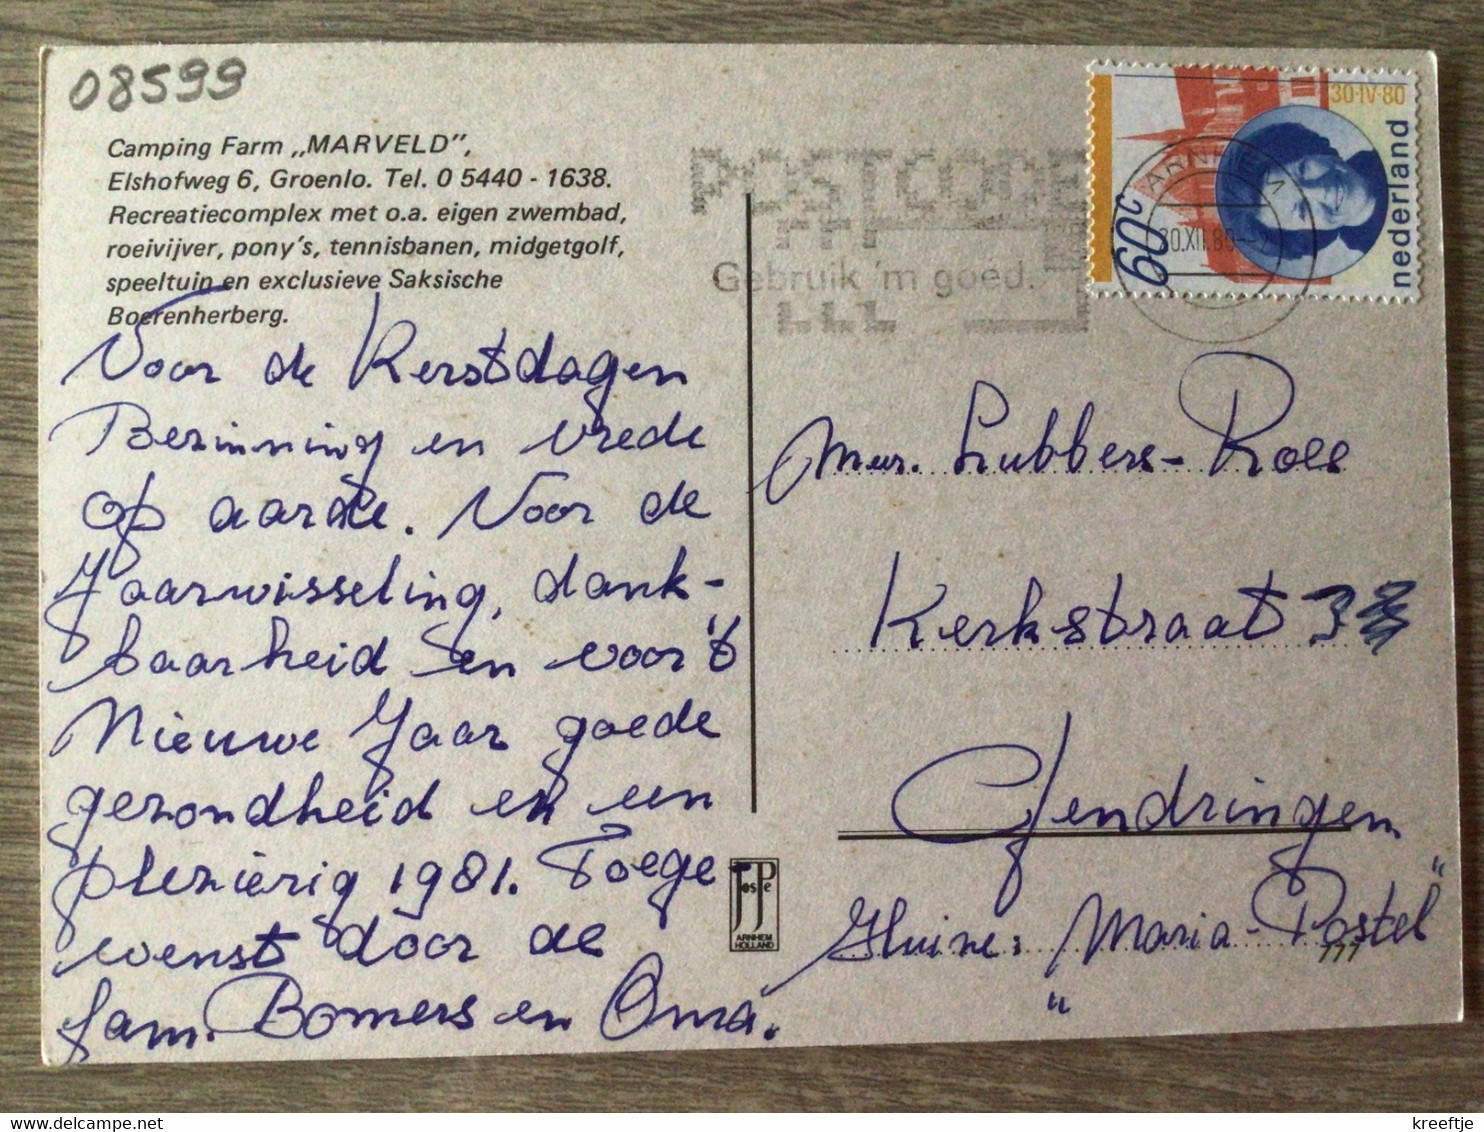 08599
Camping Farm „MARVELD”,
Elshofweg 6, Groenlo. Tel. 0 5440 - 1638.
Recreatiecomplex met o.a. eigen zwembad,
roeivijver, pony's, tennisbanen, midgetgolf,
speeltuin en exclusieve Saksische
Boerenherberg.
Voor de Kerstdagen
Bezinning en vrede
op aarde. Voor de
Jaarwisseling, dank-
baarheid en voor 't
Nieuwe Jaar goede
gezondheid en een
plezierig 1981. Toege
wenst door de
fam. Bomers en Oma.
POSTCODE
Gebruik 'm goed.
ARNHEM
30.XII.80
30·IV·80
nederland
60c
Mevr. Lubbers-Roes
Kerkstraat 3
Gendringen
Huize: „Maria-Postel”
JosPé
ARNHEM
HOLLAND
kreeftje